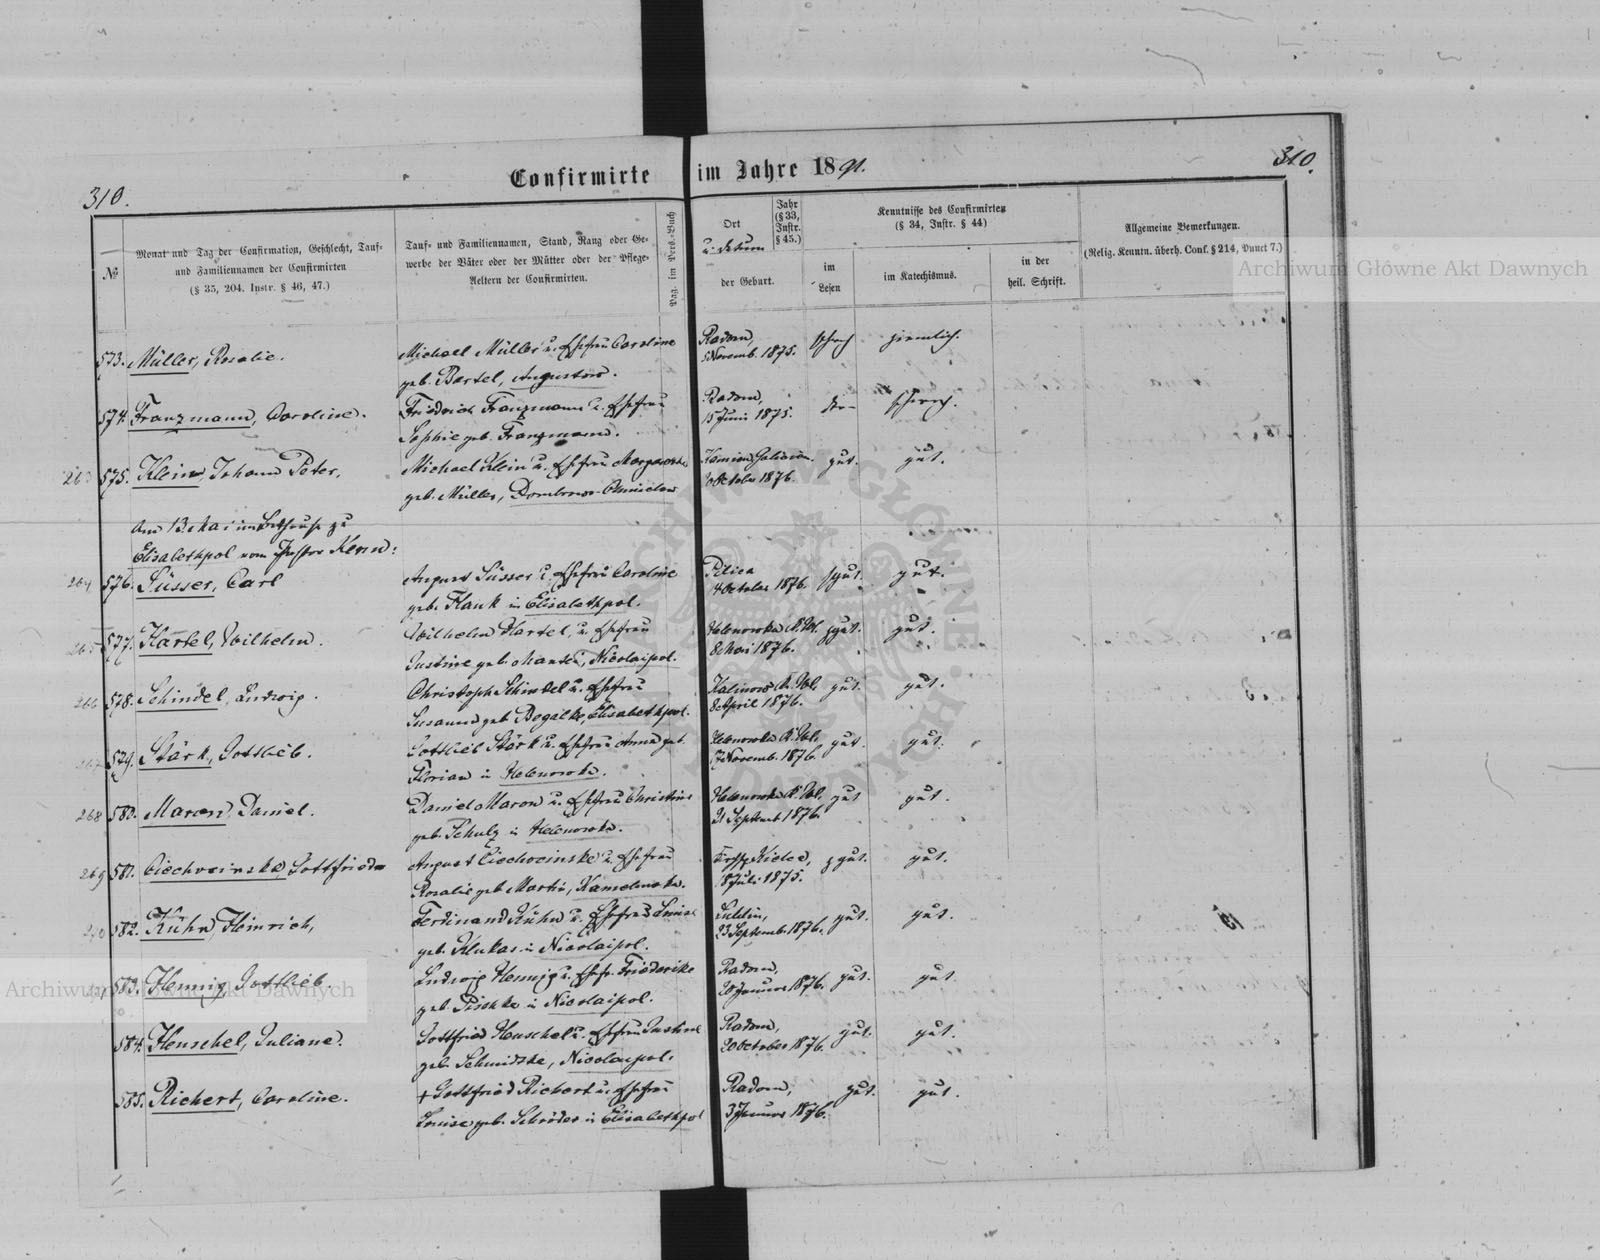 310.
Confirmirte im Jahre 1891.
310.
№
Monat und Tag der Confirmation, Geschlecht, Tauf-
und Familiennamen der Confirmirten
(§ 35, 204. Instr. § 46, 47.)
Tauf- und Familiennamen, Stand, Rang oder Ge-
werbe der Väter oder der Mütter oder der Pflege-
Aeltern der Confirmirten.
Pag. im Pers.-Buch
Ort
u. datum
der Geburt.
Jahr
(§ 33,
Instr.
§ 45.)
Kenntnisse des Confirmirten
(§ 34, Instr. § 44)
im
Lesen
im Katechismus.
in der
heil. Schrift.
Allgemeine Bemerkungen.
(Relig. Kenntn. überh. Conf. § 214, Punct 7.)
Archiwum Główne Akt Dawnych
573. Müller, Rosalie. Michael Müller u. Ehefrau Caroline Radom, schwach ziemlich.
geb. Bartel, Augustow. 5 Novemb. 1875.
574. Franzmann, Caroline. Friedrich Franzmann u. Ehefrau Radom, schwach.
Sophie geb. Franzmann. 15 Juni 1875.
263 575. Klein, Johann Peter. Michael Klein u. Ehefrau Margarethe Galizien. gut. gut.
geb. Müller, October 1876.
Am 13 Mai im Bethause zu
Elisabethpol vom Pastor Kern:
264 576. Süsser, Carl August Süsser u. Ehefrau Caroline Pilica gut. gut.
geb. Hauk in Elisabethpol. 4 October 1876.
265 577. Hartel, Wilhelm. Wilhelm Hartel, u. Ehefrau Helenowka gut. gut.
Justine geb. Nicolaipol. 8 Mai 1876.
266 578. Schindel, Ludwig. Christoph Schindel u. Ehefrau Kalinow gut. gut.
Susanna geb. Elisabethpol. 8 April 1876.
267 579. Stärk, Gottlieb. Gottlieb Stärk u. Ehefrau Anna geb. Helenowka gut. gut.
Florian in Helenowka. 17 Novemb. 1876.
268 580. Maron, Daniel. Daniel Maron u. Ehefrau Christine Helenowka gut gut.
geb. Schulz in Helenowka. 21 Septemb 1876.
269 581. Ciechocinske, Gottfried August Ciechocinske u. Ehefrau Kielce, gut. gut.
Rosalie geb. Martin, 18 Juli 1875.
270 582. Kühn, Heinrich, Ferdinand Kühn u. Ehefrau Louise Lublin, gut. gut.
geb. Klukas in Nicolaipol. 23 Septemb. 1876.
583. Hennig, Gottlieb. Ludwig Hennig u. Ehefr. Friederike Radom, gut. gut.
geb. in Nicolaipol. 20 Januar 1876.
Archiwum Główne Akt Dawnych
584. Henschel, Juliane. Gottfried Henschel u. Ehefrau Justine Radom, gut. gut.
geb. Schmidtke, Nicolaipol. 20 October 1876.
585. Richert, Caroline. † Gottfried Richert u. Ehefrau Radom, gut. gut.
Louise geb. Schröder in Elisabethpol 3 Januar 1876.
ARCHIWUM GŁÓWNE AKT DAWNYCH